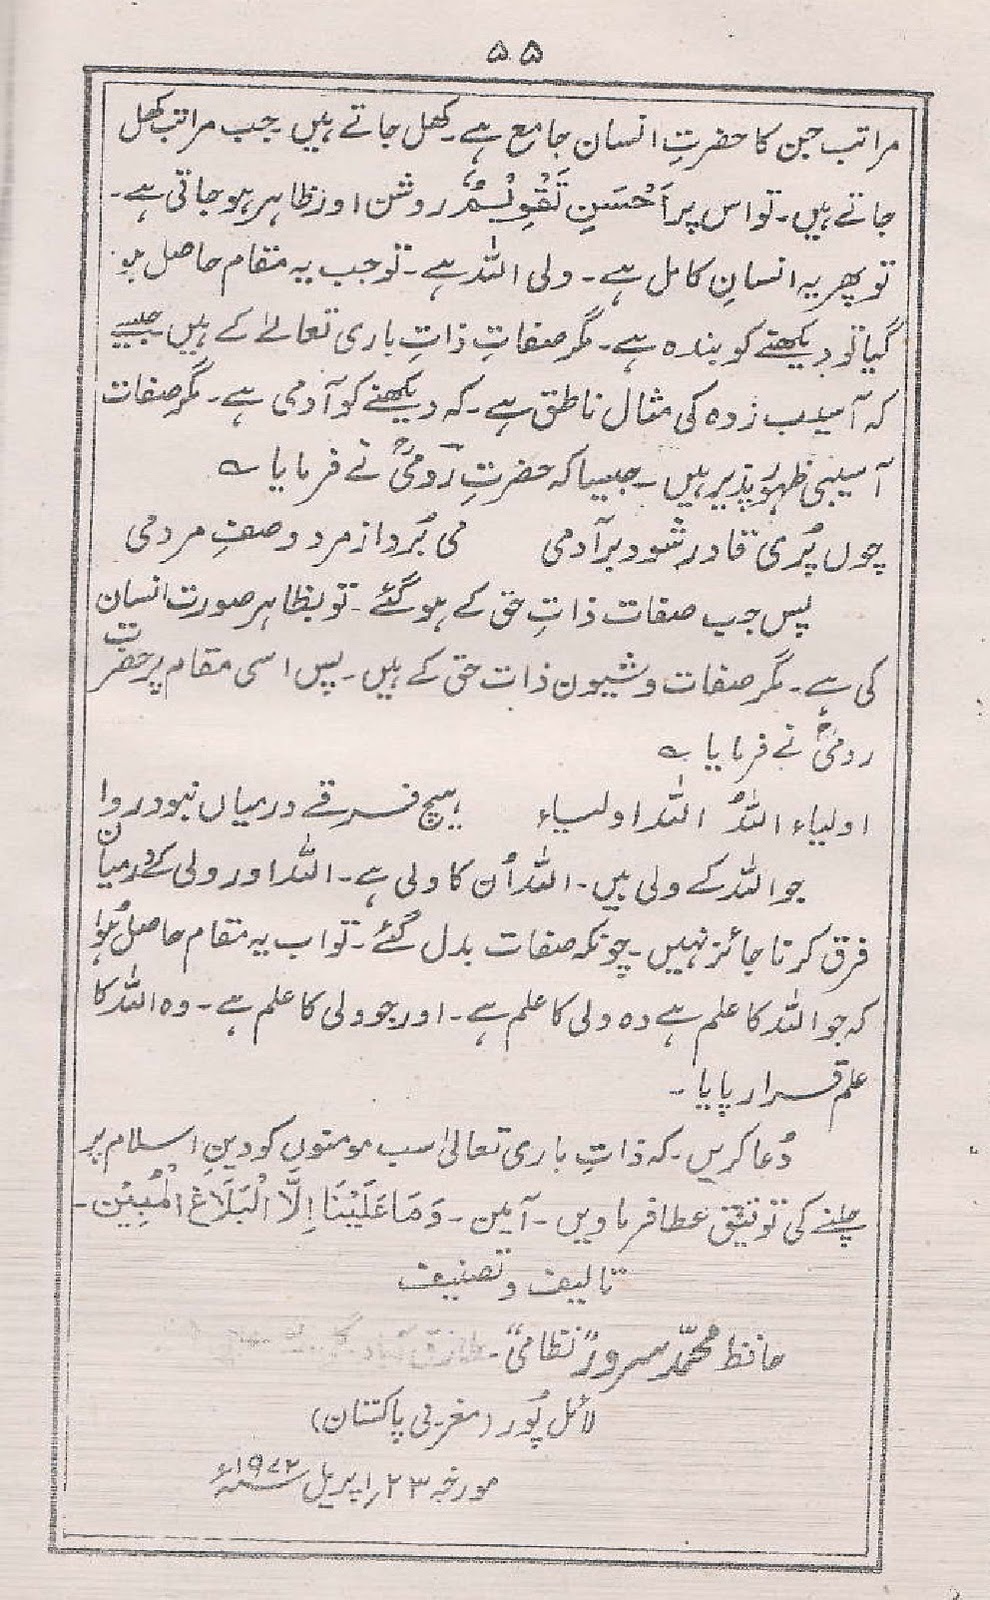 ۵۵
مراتب جن کا حضرتِ انسان جامع ہے۔ کھل جاتے ہیں۔ جب مراتب کھل
جاتے ہیں۔ تو اس پر اَحْسَنِ تَقْوِیْمٌ روشن اور ظاہر ہو جاتی ہے۔
تو پھر یہ انسانِ کامل ہے۔ ولی اللہ ہے۔ تو جب یہ مقام حاصل ہو
گیا تو دیکھنے کو بندہ ہے۔ مگر صفاتِ ذاتِ باری تعالےٰ کے ہیں جیسے
کہ آسیب زدہ کی مثال ناطق ہے۔ کہ دیکھنے کو آدمی ہے۔ مگر صفات
آسیبی ظہور پذیر ہیں۔ جیسا کہ حضرتِ رومیؒ نے فرمایا ؎
چوں پُری قادر شود بر آدمی می بُرد از مرد وصفِ مردمی
پس جب صفات ذاتِ حق کے ہو گئے۔ تو بظاہر صورت انسان
کی ہے۔ مگر صفات و شیون ذات حق کے ہیں۔ پس اسی مقام پر حضرت
رومیؒ نے فرمایا ؎
اولیاء اللہُ اللہ اولیاء ہیچ فرقے درمیاں نبود روا
جو اللہ کے ولی ہیں۔ اللہ اُن کا ولی ہے۔ اللہ اور ولی کے درمیان
فرق کرنا جائز نہیں۔ چونکہ صفات بدل گئے۔ تو اب یہ مقام حاصل ہُوا
کہ جو اللہ کا علم ہے وہ ولی کا علم ہے۔ اور جو ولی کا علم ہے۔ وہ اللہ کا
علم قرار پایا۔
دُعا کریں۔ کہ ذاتِ باری تعالیٰ سب مومنوں کو دینِ اسلام پر
چلنے کی توفیق عطا فرماویں۔ آمین۔ وَمَا عَلَیْنَا اِلَّا الْبَلَاغُ الْمُبِیْن۔
تالیف و تصنیف
حافظ محمّد سرور نظامیؒ۔
لائل پُور (مغربی پاکستان)
مورخہ ۲۳ اپریل ۱۹۷۲ء